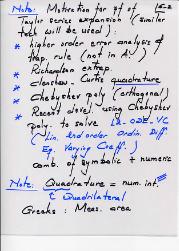 Note: Motivation for gt of
Taylor series expansion (similar
tech will be used):
* higher order error analysis of
trap. rule (not in A.)
* Richardson extrap.
* Clenshaw - Curtis quadrature
* Chebyshev poly (orthogonal)
* Recent devel. using Chebyshev
poly. to solve L2-ODE-VC
(Lin. 2nd order Ordin. Diff.
Eq. Varying Coeff.)
comb. of symbolic + numeric
Note: Quadrature = num. int.
Quadrilateral
Greeks: Meas. area